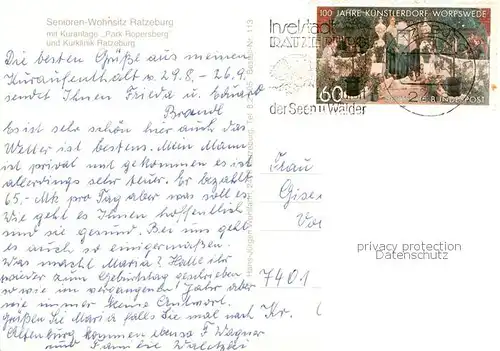 Senioren-Wohnsitz Ratzeburg
mit Kuranlage „Park Röpersberg"
und Kurklinik Ratzeburg
Die besten Grüße aus meinen
Kuraufenthalt v. 29.8 - 26.9
sendet Ihnen Frieda u. Eduard
Brandl
Es ist sehr schön hier auch das
Wetter ist bestens. Mein Mann
ist privat mit gekommen es ist
allerdings sehr teuer. Er bezahlt
65.- Mk pro Tag aber was soll es
Wie geht es Ihnen hoffentlich
sind sie gesund. Bei uns geht
es auch so einigermaßen.
Was macht Maria? Hatte ihr
wieder zum Geburtstag geschrieben
sowie im vergangenen Jahr aber
wie immer keine Antwort.
Grüßen Sie Maria falls Sie mal nach
Altenburg kommen ebenso F. Wagner
und Familie
113
Inselstadt
RATZEBURG
der Seen u. Wälder
100 JAHRE KÜNSTLERDORF WORPSWEDE
60
DEUTSCHE BUNDESPOST
Frau
Gise
7401
Kr.
privacy protection
Datenschutz